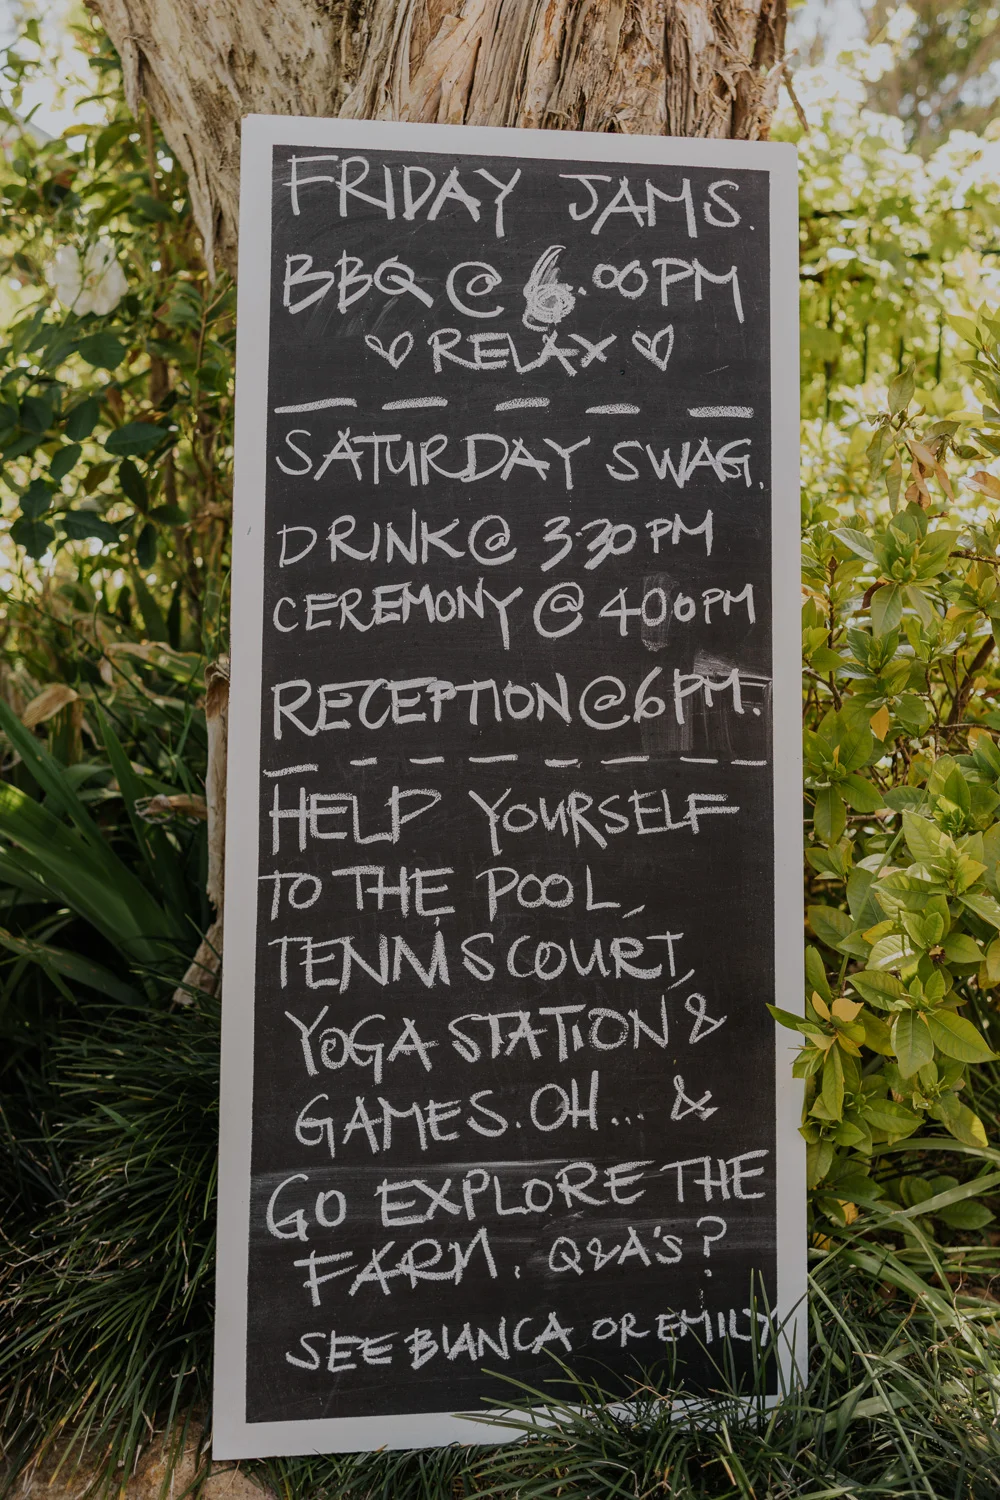 FRIDAY JAMS.
BBQ @ 6.00PM
♡ RELAX ♡
SATURDAY SWAG.
DRINK @ 3.30PM
CEREMONY @ 400PM
RECEPTION @ 6PM.
HELP YOURSELF
TO THE POOL,
TENNIS COURT,
YOGA STATION &
GAMES. OH... &
GO EXPLORE THE
FARM. Q&A'S?
SEE BIANCA OR EMILY